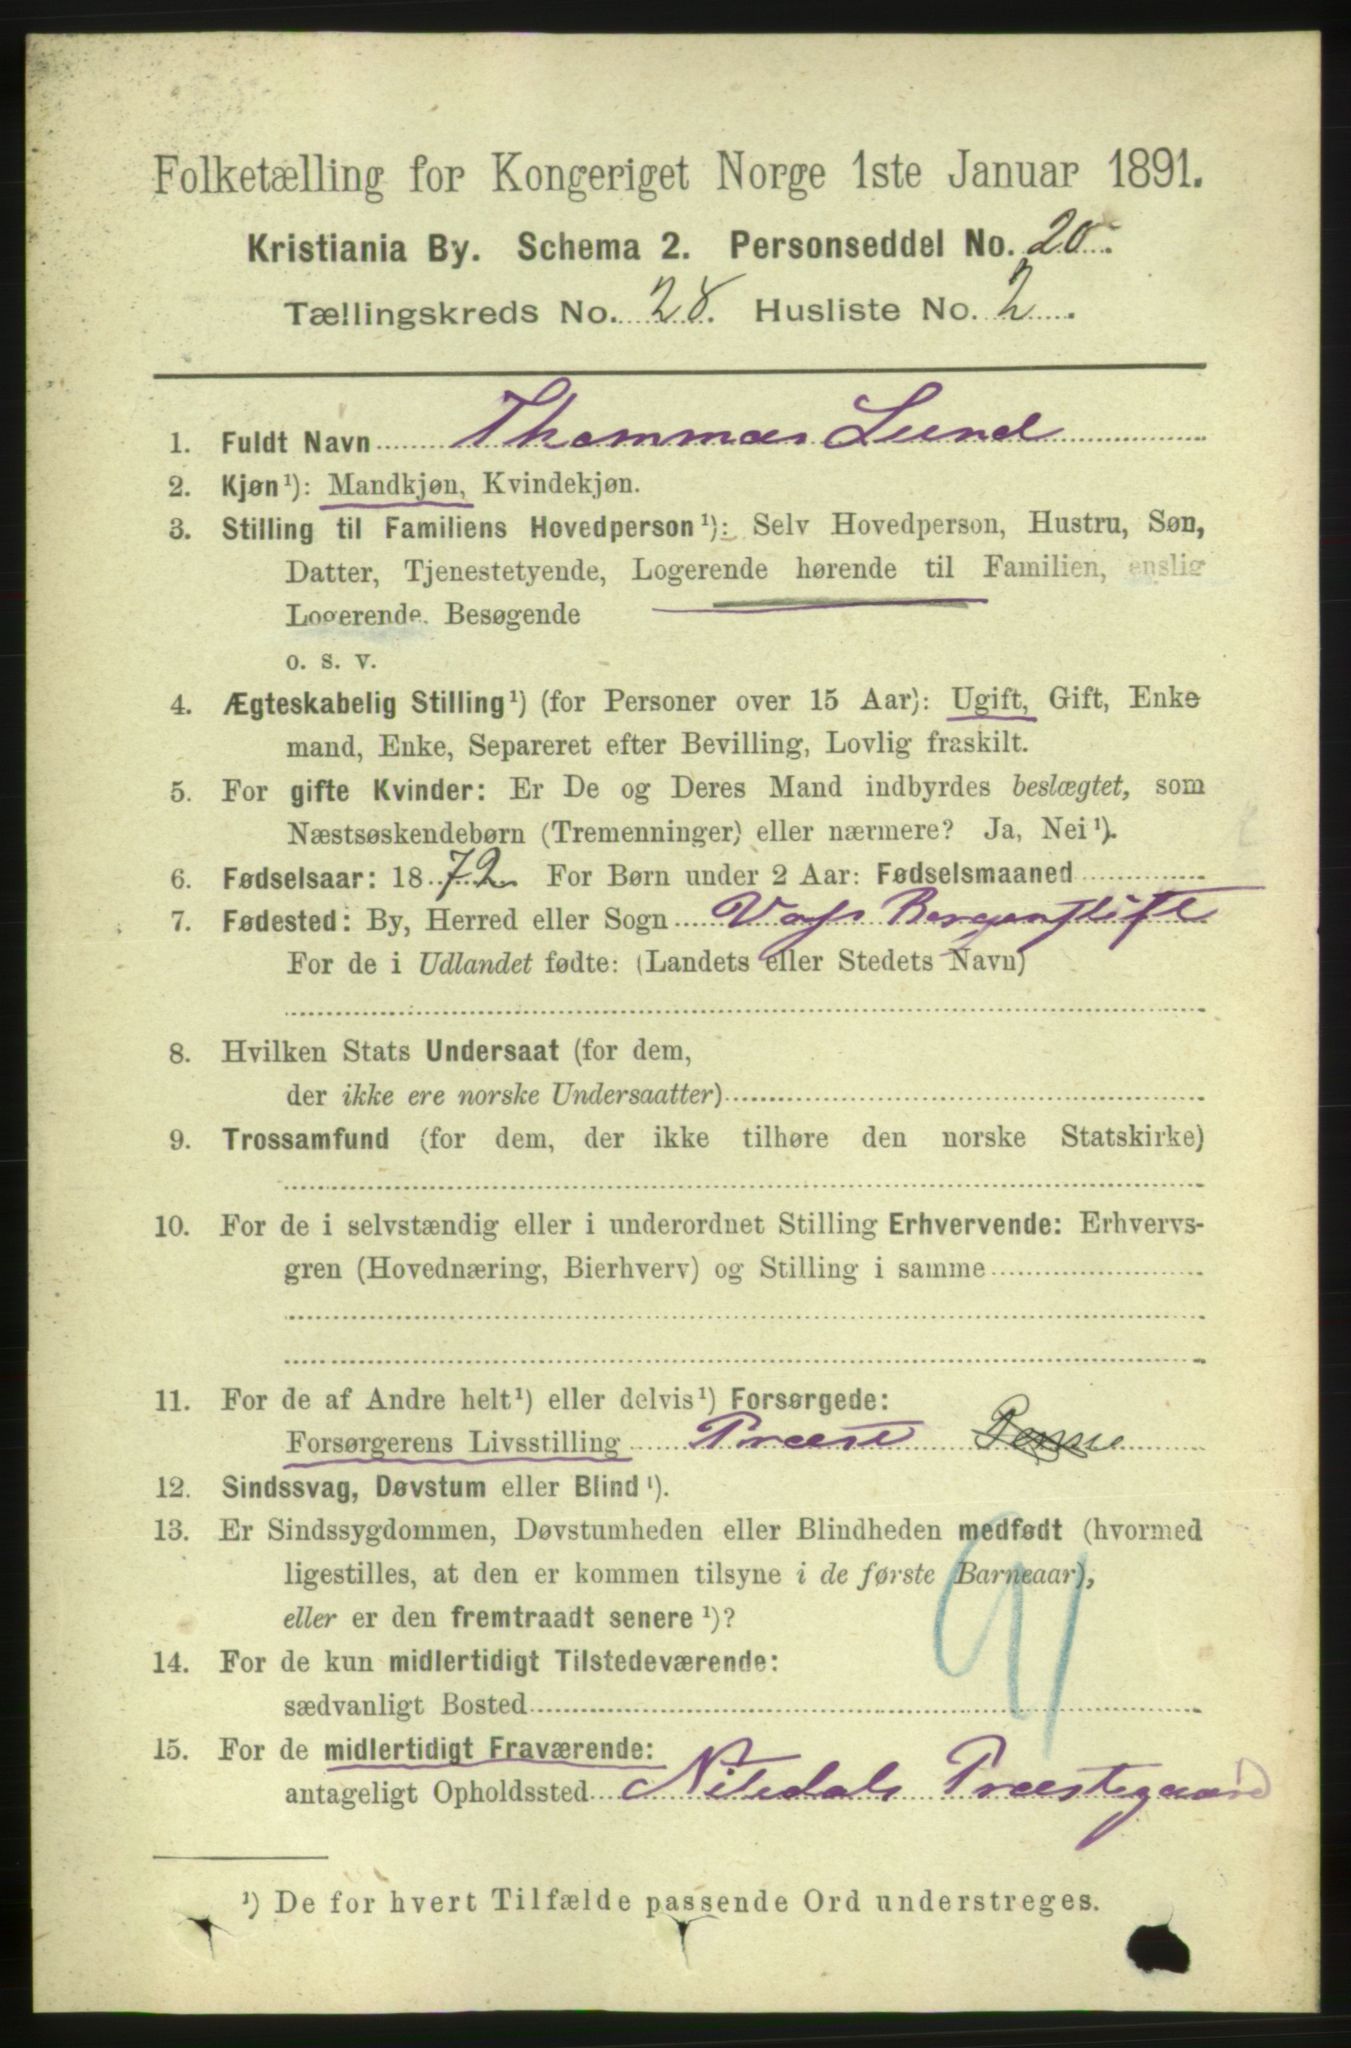 Folketælling for Kongeriget Norge 1ste Januar 1891.
Kristiania By. Schema 2. Personseddel No. 20.
Tællingskreds No. 28. Husliste No. 2.
1. Fuldt Navn Thommas Lund
2. Kjøn¹): Mandkjøn, Kvindekjøn.
3. Stilling til Familiens Hovedperson¹): Selv Hovedperson, Hustru, Søn,
Datter, Tjenestetyende, Logerende hørende til Familien, enslig
Logerende, Besøgende
o. s. v.
4. Ægteskabelig Stilling¹) (for Personer over 15 Aar): Ugift, Gift, Enke
mand, Enke, Separeret efter Bevilling, Lovlig fraskilt.
5. For gifte Kvinder: Er De og Deres Mand indbyrdes beslægtet, som
Næstsøskendebørn (Tremenninger) eller nærmere? Ja, Nei¹).
6. Fødselsaar: 1872 For Børn under 2 Aar: Fødselsmaaned
7. Fødested: By, Herred eller Sogn Bergenstift
For de i Udlandet fødte: (Landets eller Stedets Navn)
8. Hvilken Stats Undersaat (for dem,
der ikke ere norske Undersaatter)
9. Trossamfund (for dem, der ikke tilhøre den norske Statskirke)
10. For de i selvstændig eller i underordnet Stilling Erhvervende: Erhvervs-
gren (Hovednæring, Bierhverv) og Stilling i samme
11. For de af Andre helt¹) eller delvis¹) Forsørgede:
Forsørgerens Livsstilling Præst
12. Sindssvag, Døvstum eller Blind¹).
13. Er Sindssygdommen, Døvstumheden eller Blindheden medfødt (hvormed
ligestilles, at den er kommen tilsyne i de første Barneaar),
eller er den fremtraadt senere¹)?
91
14. For de kun midlertidigt Tilstedeværende:
sædvanligt Bosted
15. For de midlertidigt Fraværende:
antageligt Opholdssted Nitedals Præstegaard
¹) De for hvert Tilfælde passende Ord understreges.